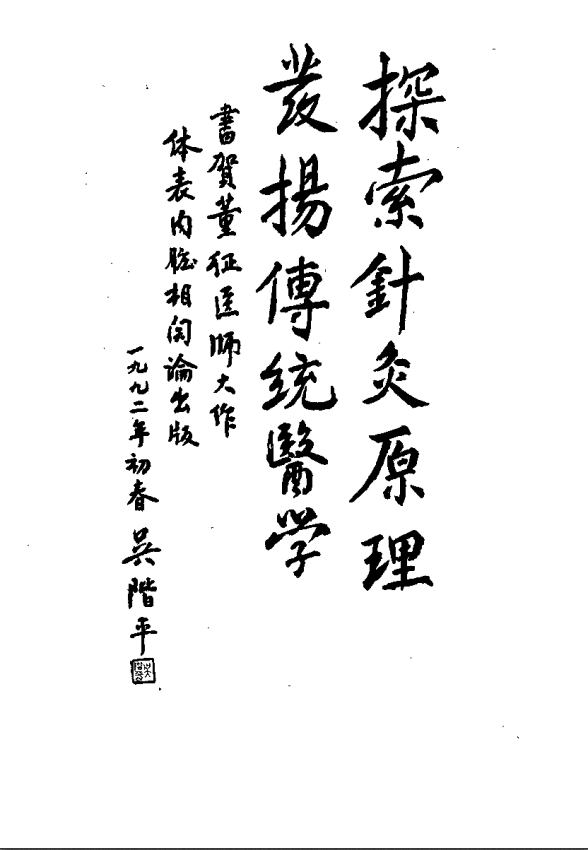 探索針灸原理
发揚傳統醫学
書賀董征医师大作
体表内脏相関論出版
一九九二年初春 吴階平